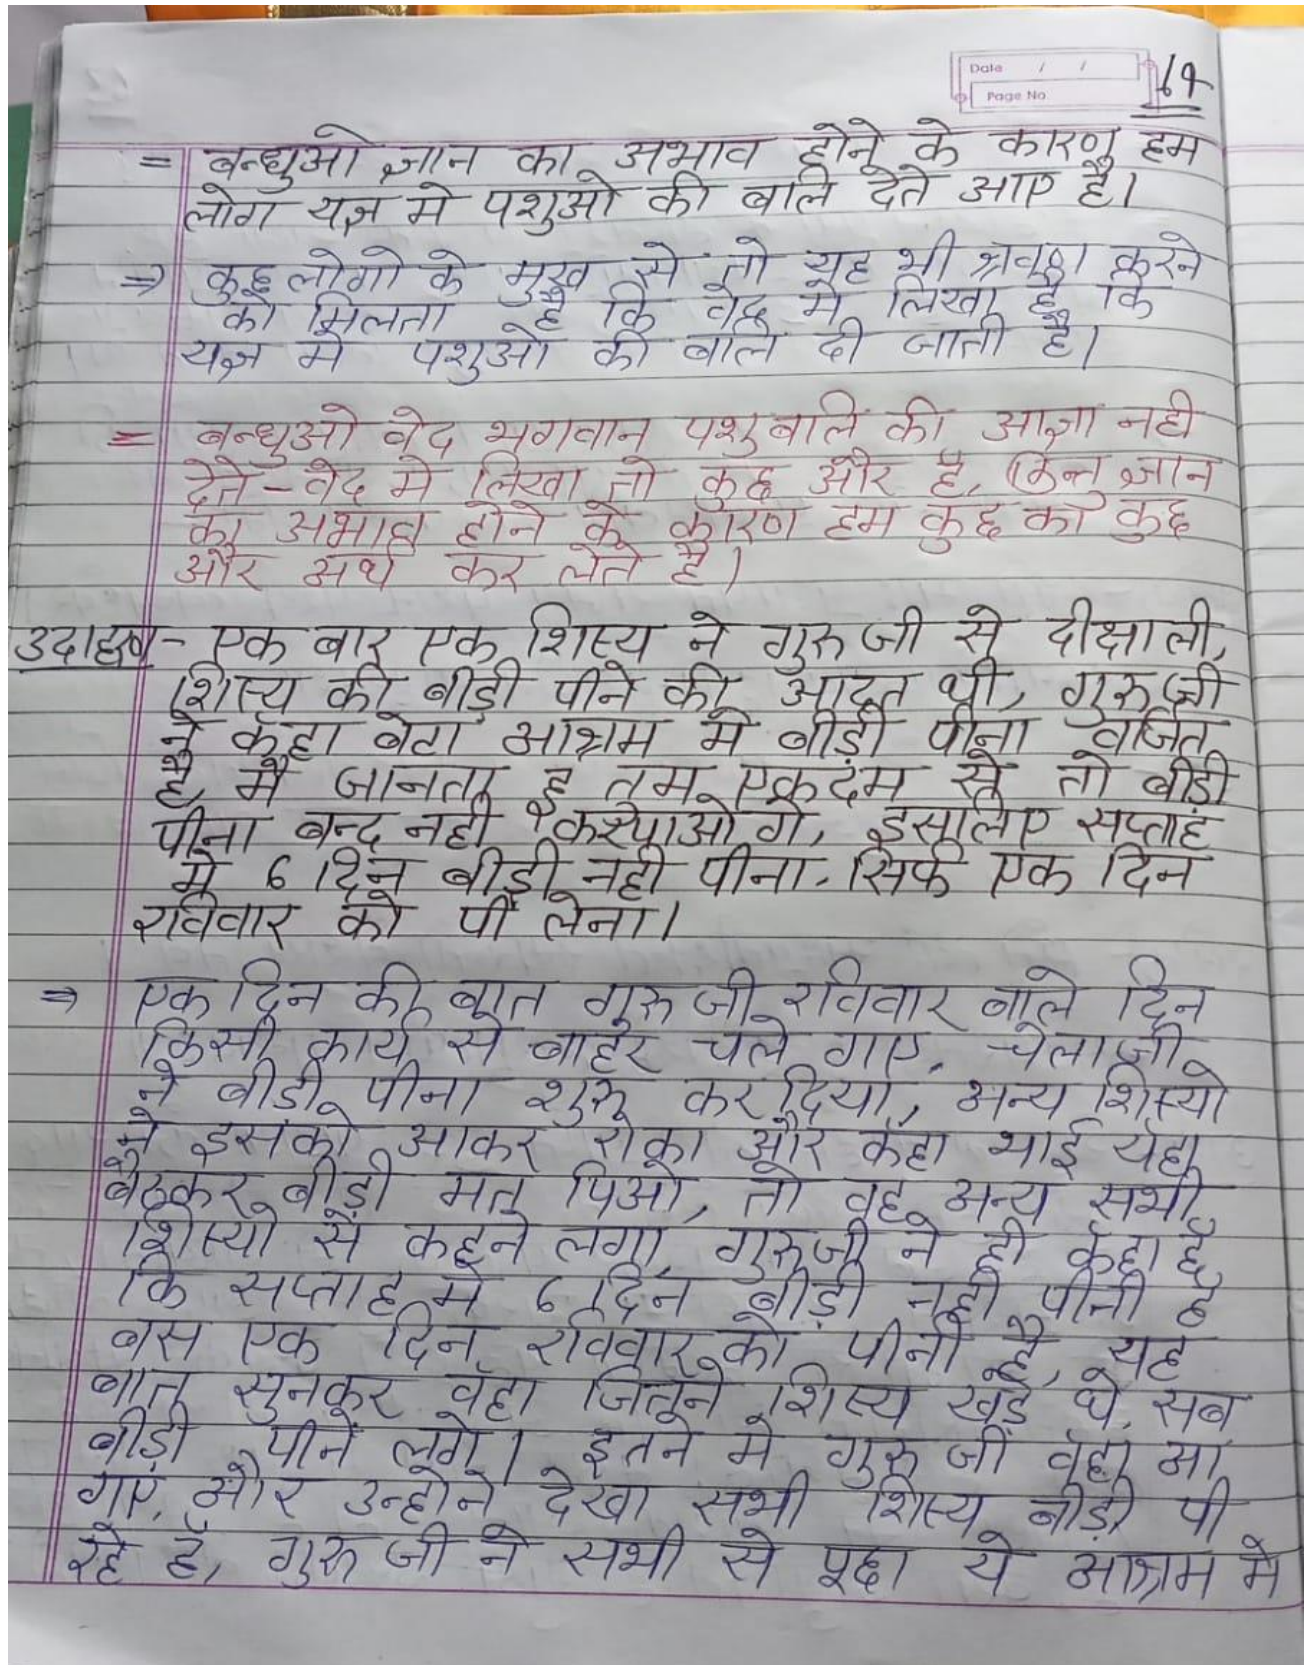 Date / /
Page No
69
= बन्धुओ ज्ञान का अभाव होने के कारण हम
लोग यज्ञ मे पशुओ की बलि देते आए है।
⇒ कुछ लोगो के मुख से तो यह भी श्रवण करने
को मिलता है कि वेद मे लिखा है कि
यज्ञ मे पशुओ की बलि दी जाती है।
= बन्धुओ वेद भगवान पशुबलि की आज्ञा नही
देते - वेद मे लिखा तो कुछ और है, किन्तु ज्ञान
का अभाव होने के कारण हम कुछ का कुछ
और अर्थ कर लेते है।
उदाहरण - एक बार एक शिस्य ने गुरु जी से दीक्षा ली,
शिस्य की बीड़ी पीने की आदत थी, गुरु जी
ने कॅहा बेटा आश्रम मे बीड़ी पीना वर्जित
है, मै जानता हू तुम एकदम से तो बीड़ी
पीना बन्द नही कर पाओगे, इसलिए सप्ताह
मे 6 दिन बीड़ी नही पीना, सिर्फ एक दिन
रविवार को पी लेना।
⇒ एक दिन की बात गुरु जी रविवार बाले दिन
किसी कार्य से बाहर चले गाए, चेला जी
ने बीडी पीना शुरू कर दिया, अन्य शिस्यो
ने इसको आकर रोका और कॅहा भाई यॅहा
बैठकर बीड़ी मत पिओ, तो वह अन्य सभी
शिस्यो से कहने लगा, गुरुजी ने ही कॅहा है
कि सप्ताह मे 6 दिन बीड़ी नही पीनी है
बस एक दिन रविवार को पीनी है, यह
बात सुनकर वॅहा जितने शिस्य खड़े थे, सब
बीड़ी पीने लगे। इतने मे गुरु जी वॅहा आ
गए, और उन्होने देखा सभी शिस्य बीड़ी पी
रहे है, गुरु जी ने सभी से पूछा ये आश्रम मे